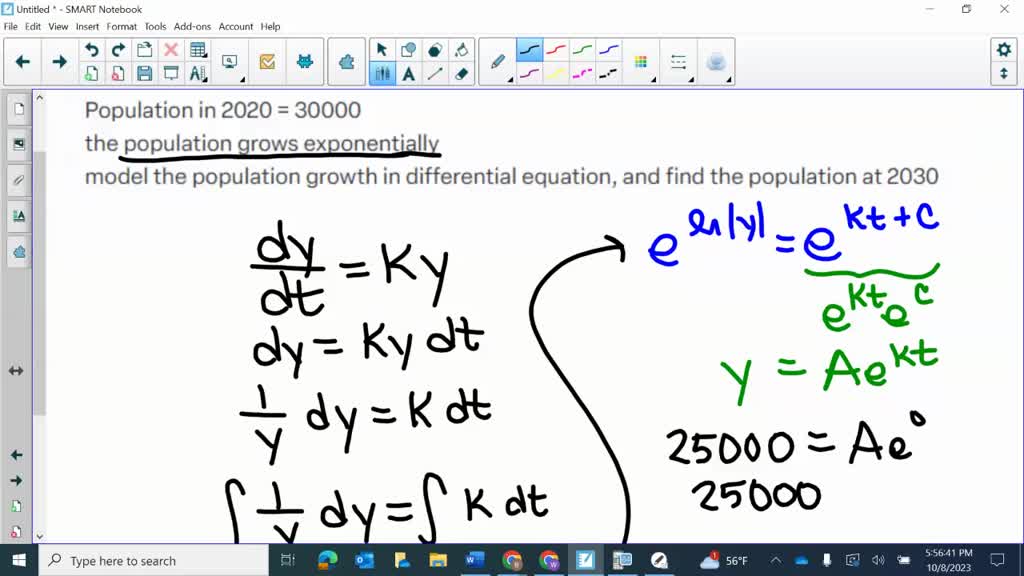 Untitled * - SMART Notebook
File Edit View Insert Format Tools Add-ons Account Help
Population in 2020 = 30000
the population grows exponentially
model the population growth in differential equation, and find the population at 2030
dy/dt = Ky
dy = Ky dt
1/y dy = K dt
∫ 1/y dy = ∫ K dt
e^ln|y| = e^kt+c
e^kt e^c
y = Ae^kt
25000 = Ae^0
25000
Type here to search
56°F
5:56:41 PM
10/8/2023